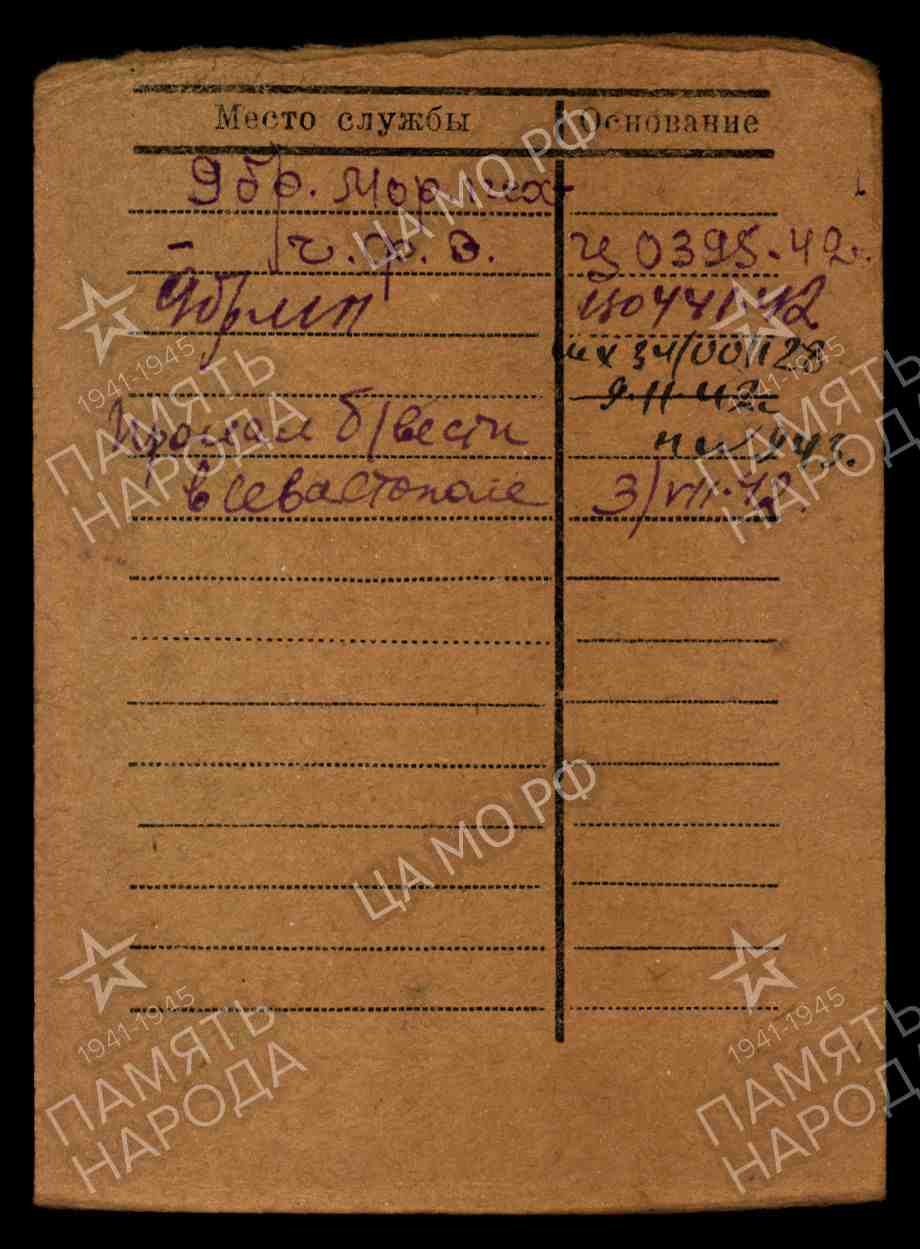 Место службы Основание
9 бр. Морпех
- ч.ф.з. Ц 0395.42.
9 брмп Ц0441.42
вх 34/001128
9.11.42г
Пропал б/вести
в Севастополе 3/VII.42.
ЦА МО РФ
1941-1945
ПАМЯТЬ
НАРОДА
1941-1945
ПАМЯТЬ
НАРОДА
ЦА МО РФ
1941-1945
ПАМЯТЬ
НАРОДА
1941-1945
ПАМЯТЬ
НАРОДА